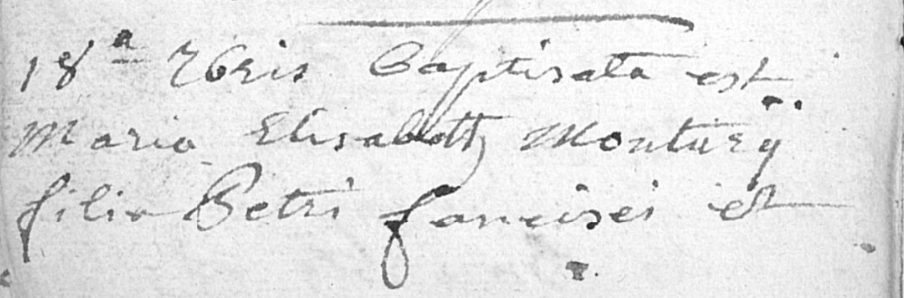 18ª Xbris Baptisata est
Maria Elisabeth Monturÿ
filia Petri francisci et